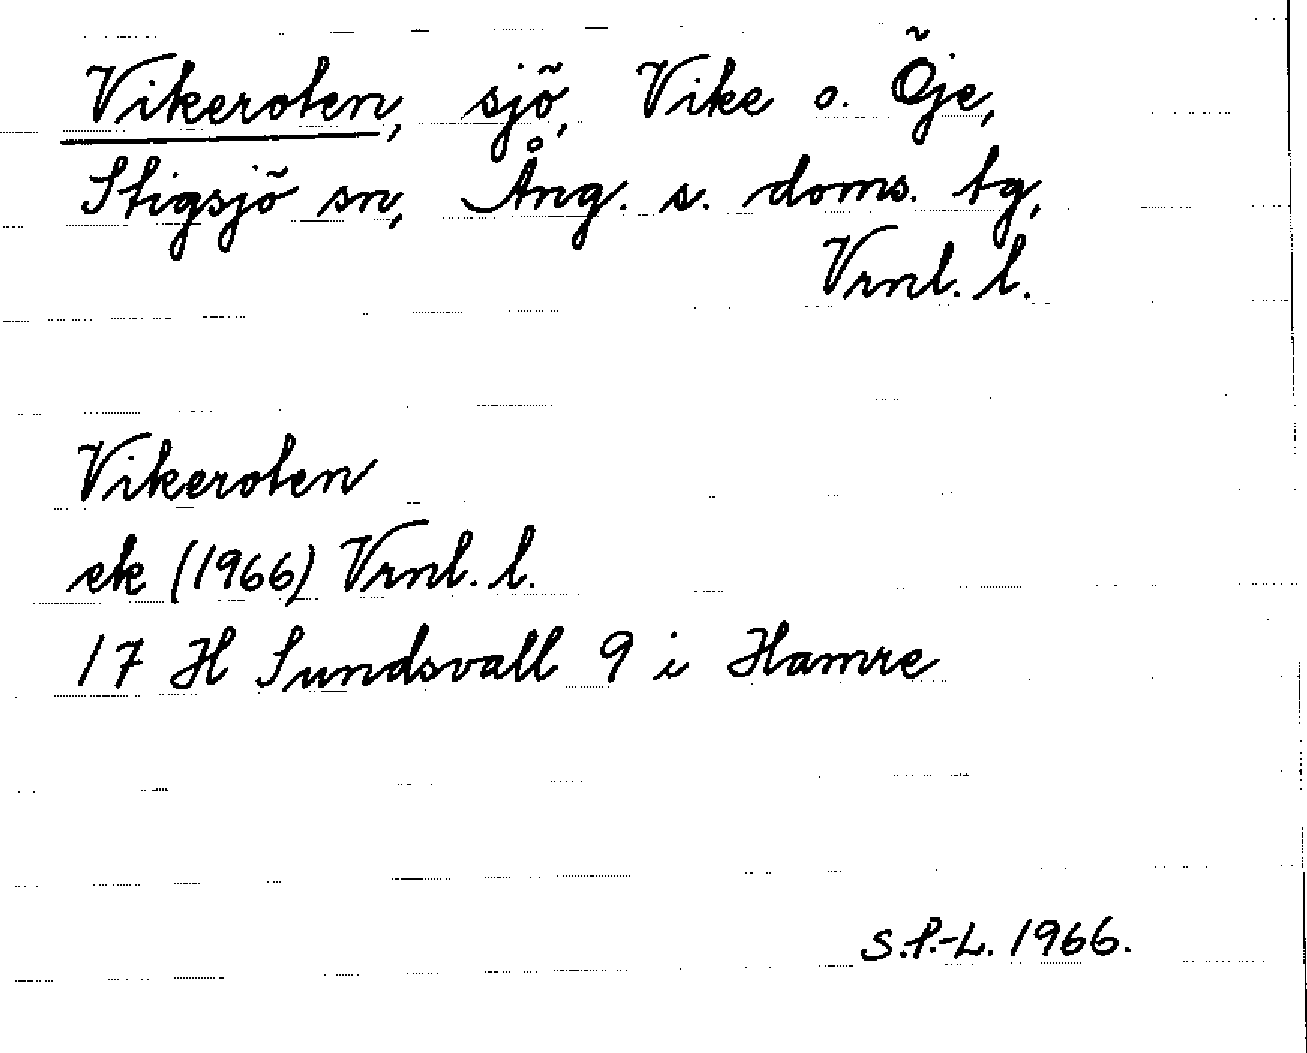 Vikeroten, sjö, Vike o. Öje,
Stigsjö sn, Ång. s. doms. tg,
Vrnl. l.
Vikeroten
ek (1966) Vrnl. l.
17 H Sundsvall 9 i Hamre
S.P.-L. 1966.